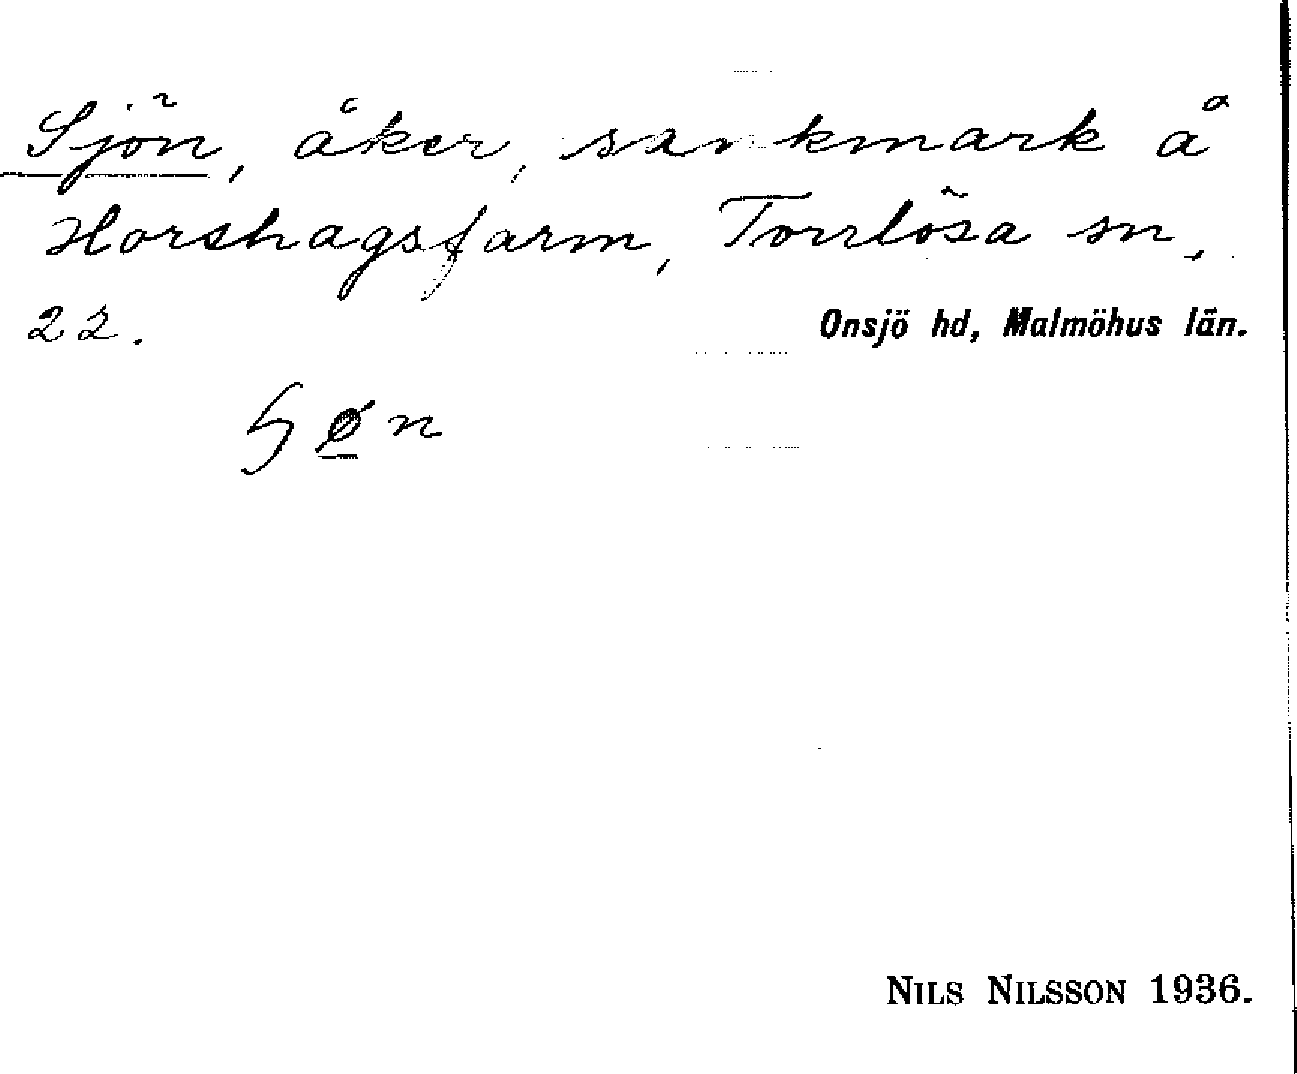 Sjön, åker, sankmark å
Horshagsfarm, Torrlösa sn,
22.
Onsjö hd, Malmöhus län.
ɧøn
NILS NILSSON 1936.